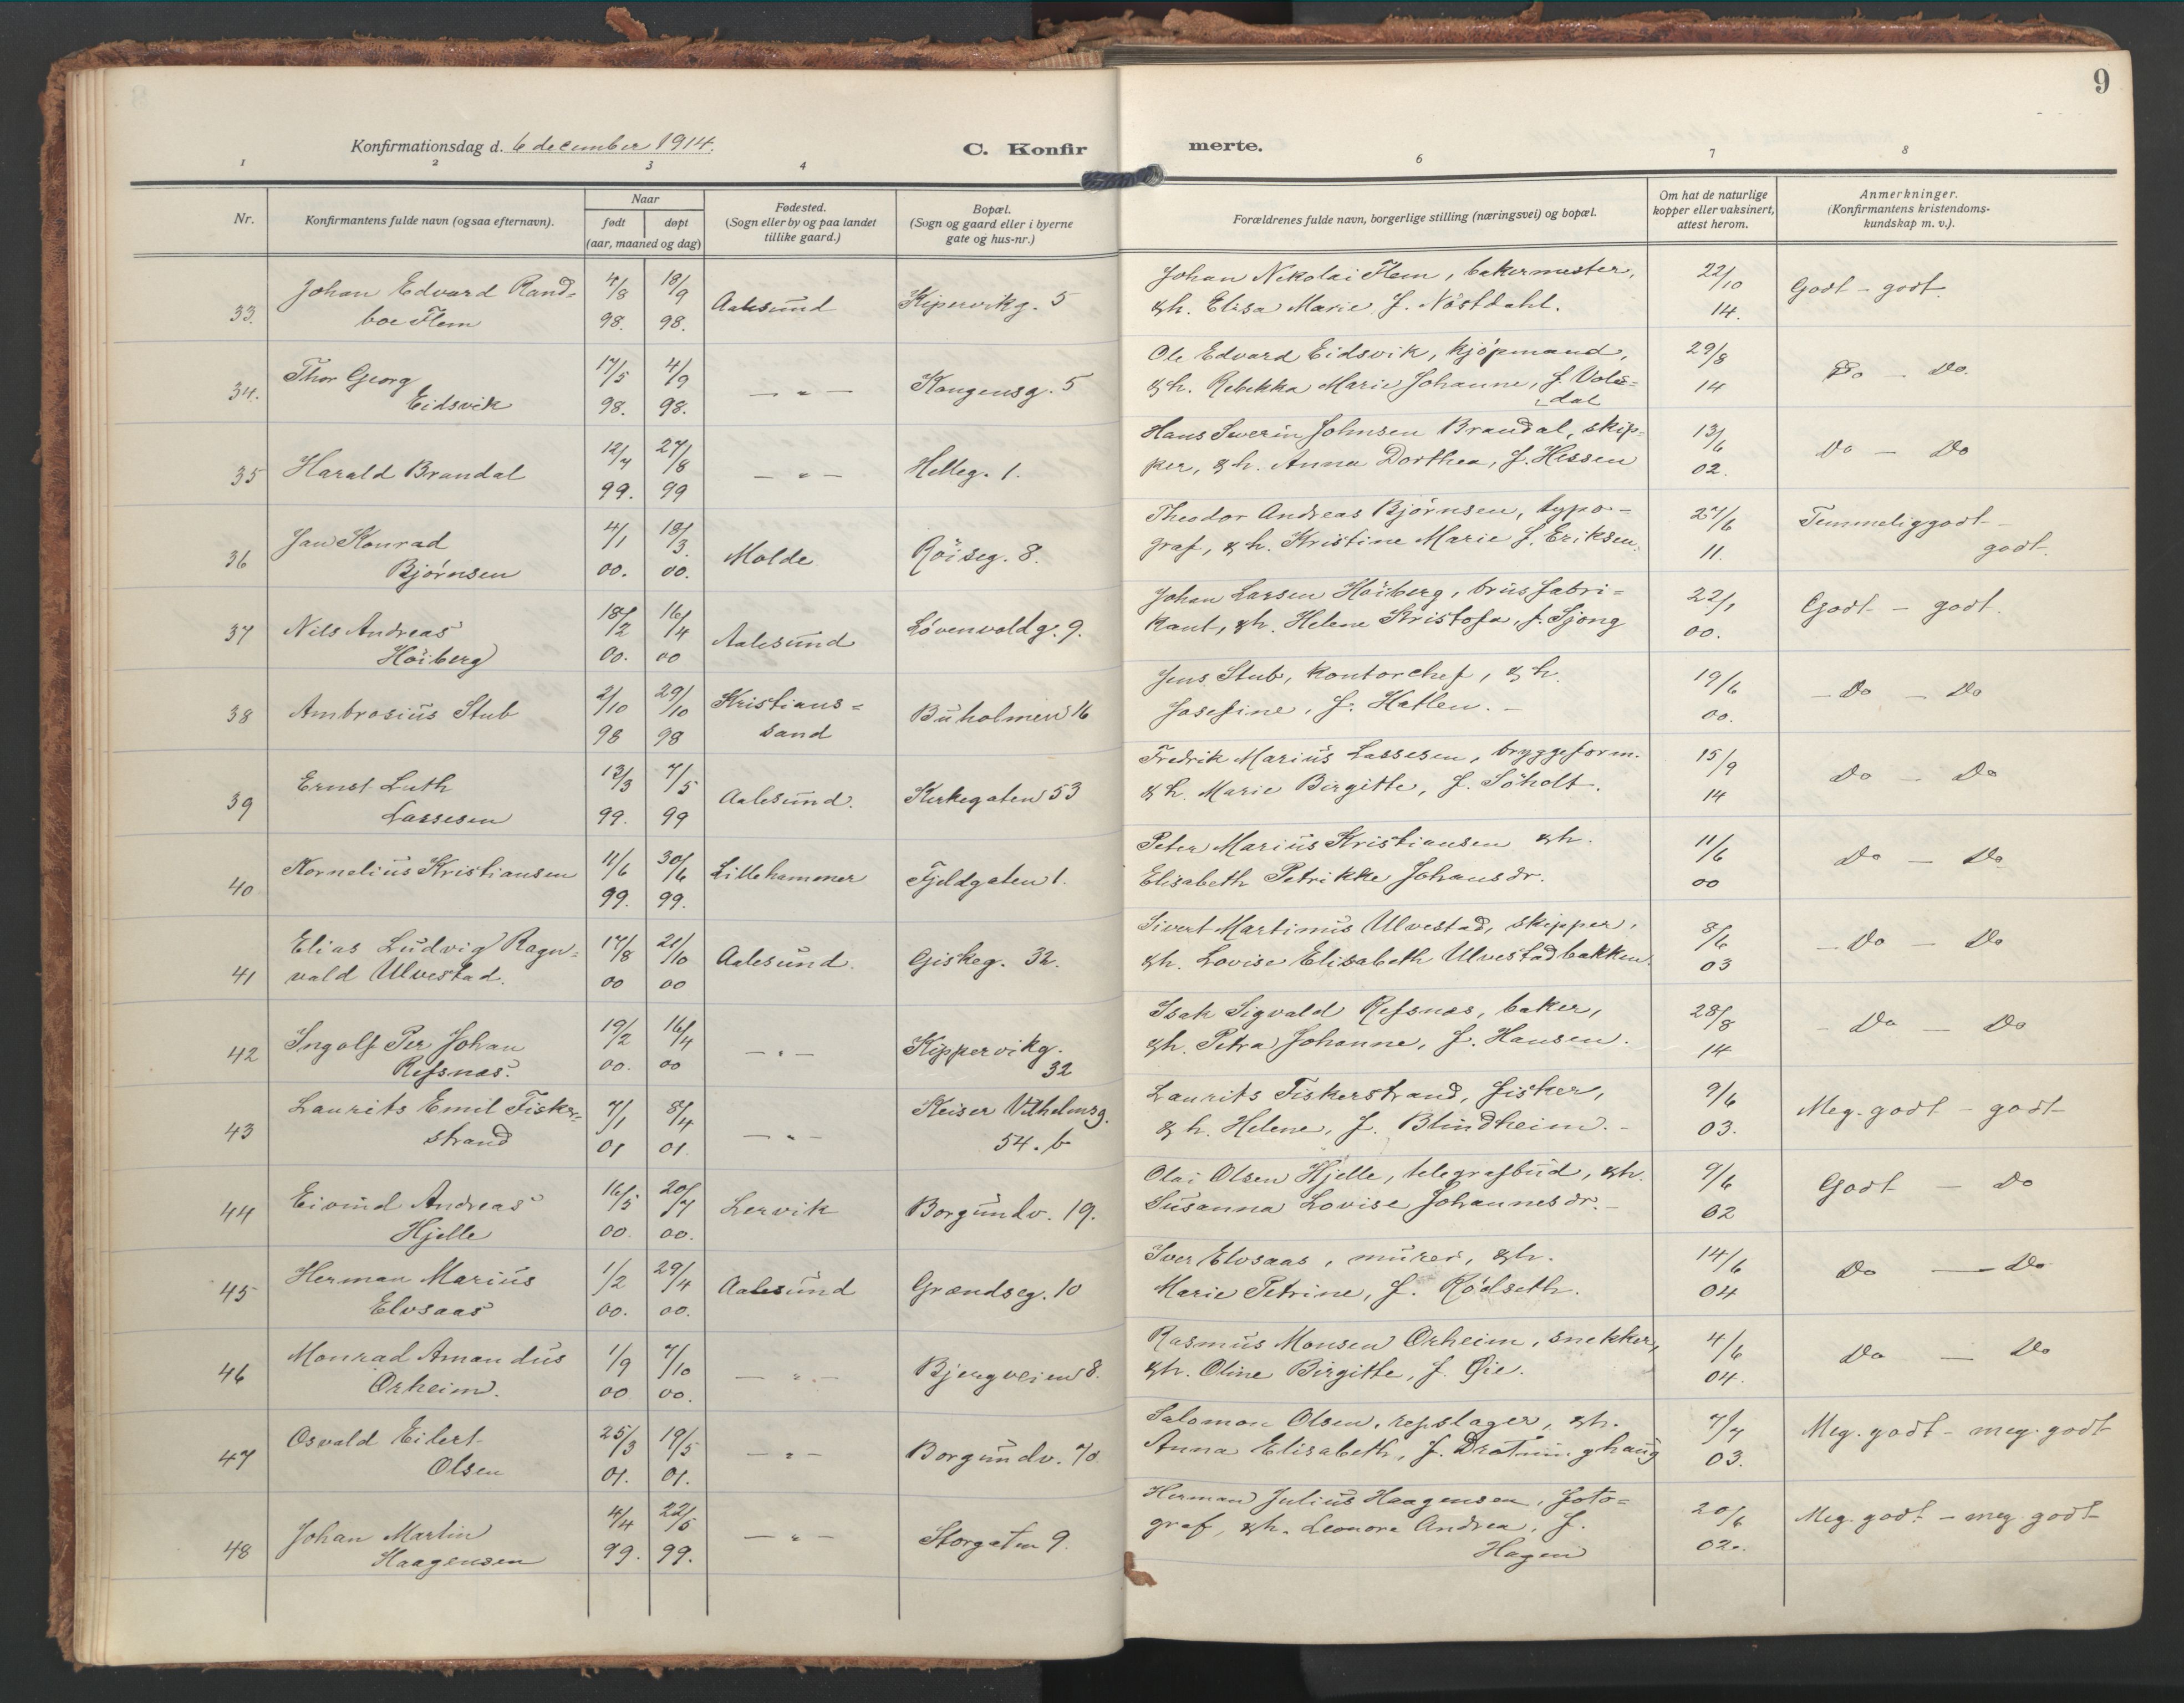 9
Konfirmationsdag d. 6 december 1914.
C. Konfir merte.
1 2 3 4 6 7 8
Nr.
Konfirmantens fulde navn (ogsaa efternavn).
Naar
født døpt
(aar, maaned og dag)
Fødested.
(Sogn eller by og paa landet
tillike gaard.)
Bopæl.
(Sogn og gaard eller i byerne
gate og hus-nr.)
Forældrenes fulde navn, borgerlige stilling (næringsvei) og bopæl.
Om hat de naturlige
kopper eller vaksinert,
attest herom.
Anmerkninger.
(Konfirmantens kristendoms-
kundskap m. v.).
33. Johan Edvard Rand=
boe Flem
4/8 98. 18/9 98.
Aalesund
Kipervikg. 5
Johan Nikolai Flem, bakermester,
& h. Elisa Marie f. Nöstdahl.
22/10 14.
Godt - godt.
34. Thor Georg
Eidsvik
17/5 98. 4/9 98.
— " —
Kongensg. 5
Ole Edvard Eidsvik, kjöpmand,
& h. Rebekka Marie Johanne, f. Vols=
dal
29/8 14
Do - Do.
35 Harald Brandal
12/4 99. 27/8 99
— " —
Helleg. 1.
Hans Severin Johnsen Brandal, skip=
per, & h. Anna Dorthea, f. Hessen
13/6 02.
Do - Do
36 Jan Konrad
Bjørnsen
4/1 00. 18/3. 00.
Molde
Röiseg. 8.
Theodor Andreas Bjørnsen, typo=
graf, & h. Kristine Marie f. Eriksen.
27/6 11.
Temmelig godt -
godt.
37 Nils Andreas
Höiberg
18/2 00. 16/4 00
Aalesund
Løvenvoldg. 9.
Johan Larsen Höiberg, brusfabri=
kant, & h. Helene Kristofa, f. Sjong
22/1 00.
Godt - godt.
38 Ambrosius Stub
2/10 98 29/10 98
Kristians=
sand
Buholmen 16
Jens Stub, kontorchef, & h.
Josefine, f. Hatlen. -
19/6 00.
- Do - Do
39 Ernst Luth
Lassesen
13/3 99. 7/5 99
Aalesund.
Kirkegaten 53
Fredrik Marius Lassesen, bryggeform.
& h. Marie Birgitte, f. Söholt.
15/9 14
Do - Do
40 Kornelius Kristiansen
11/6 99. 30/6 99.
Lillehammer
Fjeldgaten 1.
Peter Marius Kristiansen & h.
Elisabeth Petrikke Johansdr.
11/6 00
Do - Do
41 Elias Ludvig Ragn=
vald Ulvestad.
17/8 00 21/10 00
Aalesund.
Giskeg. 32.
Sivert Martinus Ulvestad, skipper,
& h. Lovise Elisabeth Ulvestadbakken.
8/6 03
- Do - Do
42 Ingolf Per Johan
Refsnæs.
19/2 00. 16/4 00
— " —
Kippervikg.
32
Isak Sigvald Refsnæs, baker,
& h. Petra Johanne, f. Hansen.
28/8 14
- Do - Do
43 Laurits Emil Fisker=
strand
7/1 01 8/4 01
— " —
Keiser Vilhelmsg.
54. b
Laurits Fiskerstrand, fisker,
& h. Helene, f. Blindheim. -
9/6 03.
Meg. godt - godt
44 Eivind Andreas
Hjelle
16/5 00. 20/7 00.
Lervik
Borgundv. 19.
Olai Olsen Hjelle, telegrafbud, & h.
Susanna Lovise Johannesdr. -
9/6 02
Godt - Do
45 Herman Marius
Elvsaas
1/2 00. 29/4 00.
Aalesund
Grændseg. 10
Iver Elvsaas, murer, & h.
Marie Petrine, f. Rödseth.
14/6 04
Do - Do
46 Monrad Amandus
Orheim.
1/9 00 7/10 00.
— " —
Bjergveien 8.
Rasmus Monsen Orheim, snekker,
& h. Oline Birgitte, f. Øie.
4/6 04.
Do - Do
47 Osvald Eilert
Olsen
25/3 01. 19/5 01.
— " —
Borgundv. 70
Salomon Olsen, repslager, & h.
Anna Elisabeth, f. Drotninghaug
7/7 03.
Meg. godt - meg. godt
48 Johan Martin
Haagensen
4/4 99. 22/5 99.
— " —
Storgaten 9.
Herman Julius Haagensen, foto=
graf, & h. Leonora Andrea, f.
Hagen
20/6 02.
Meg. godt - meg. godt